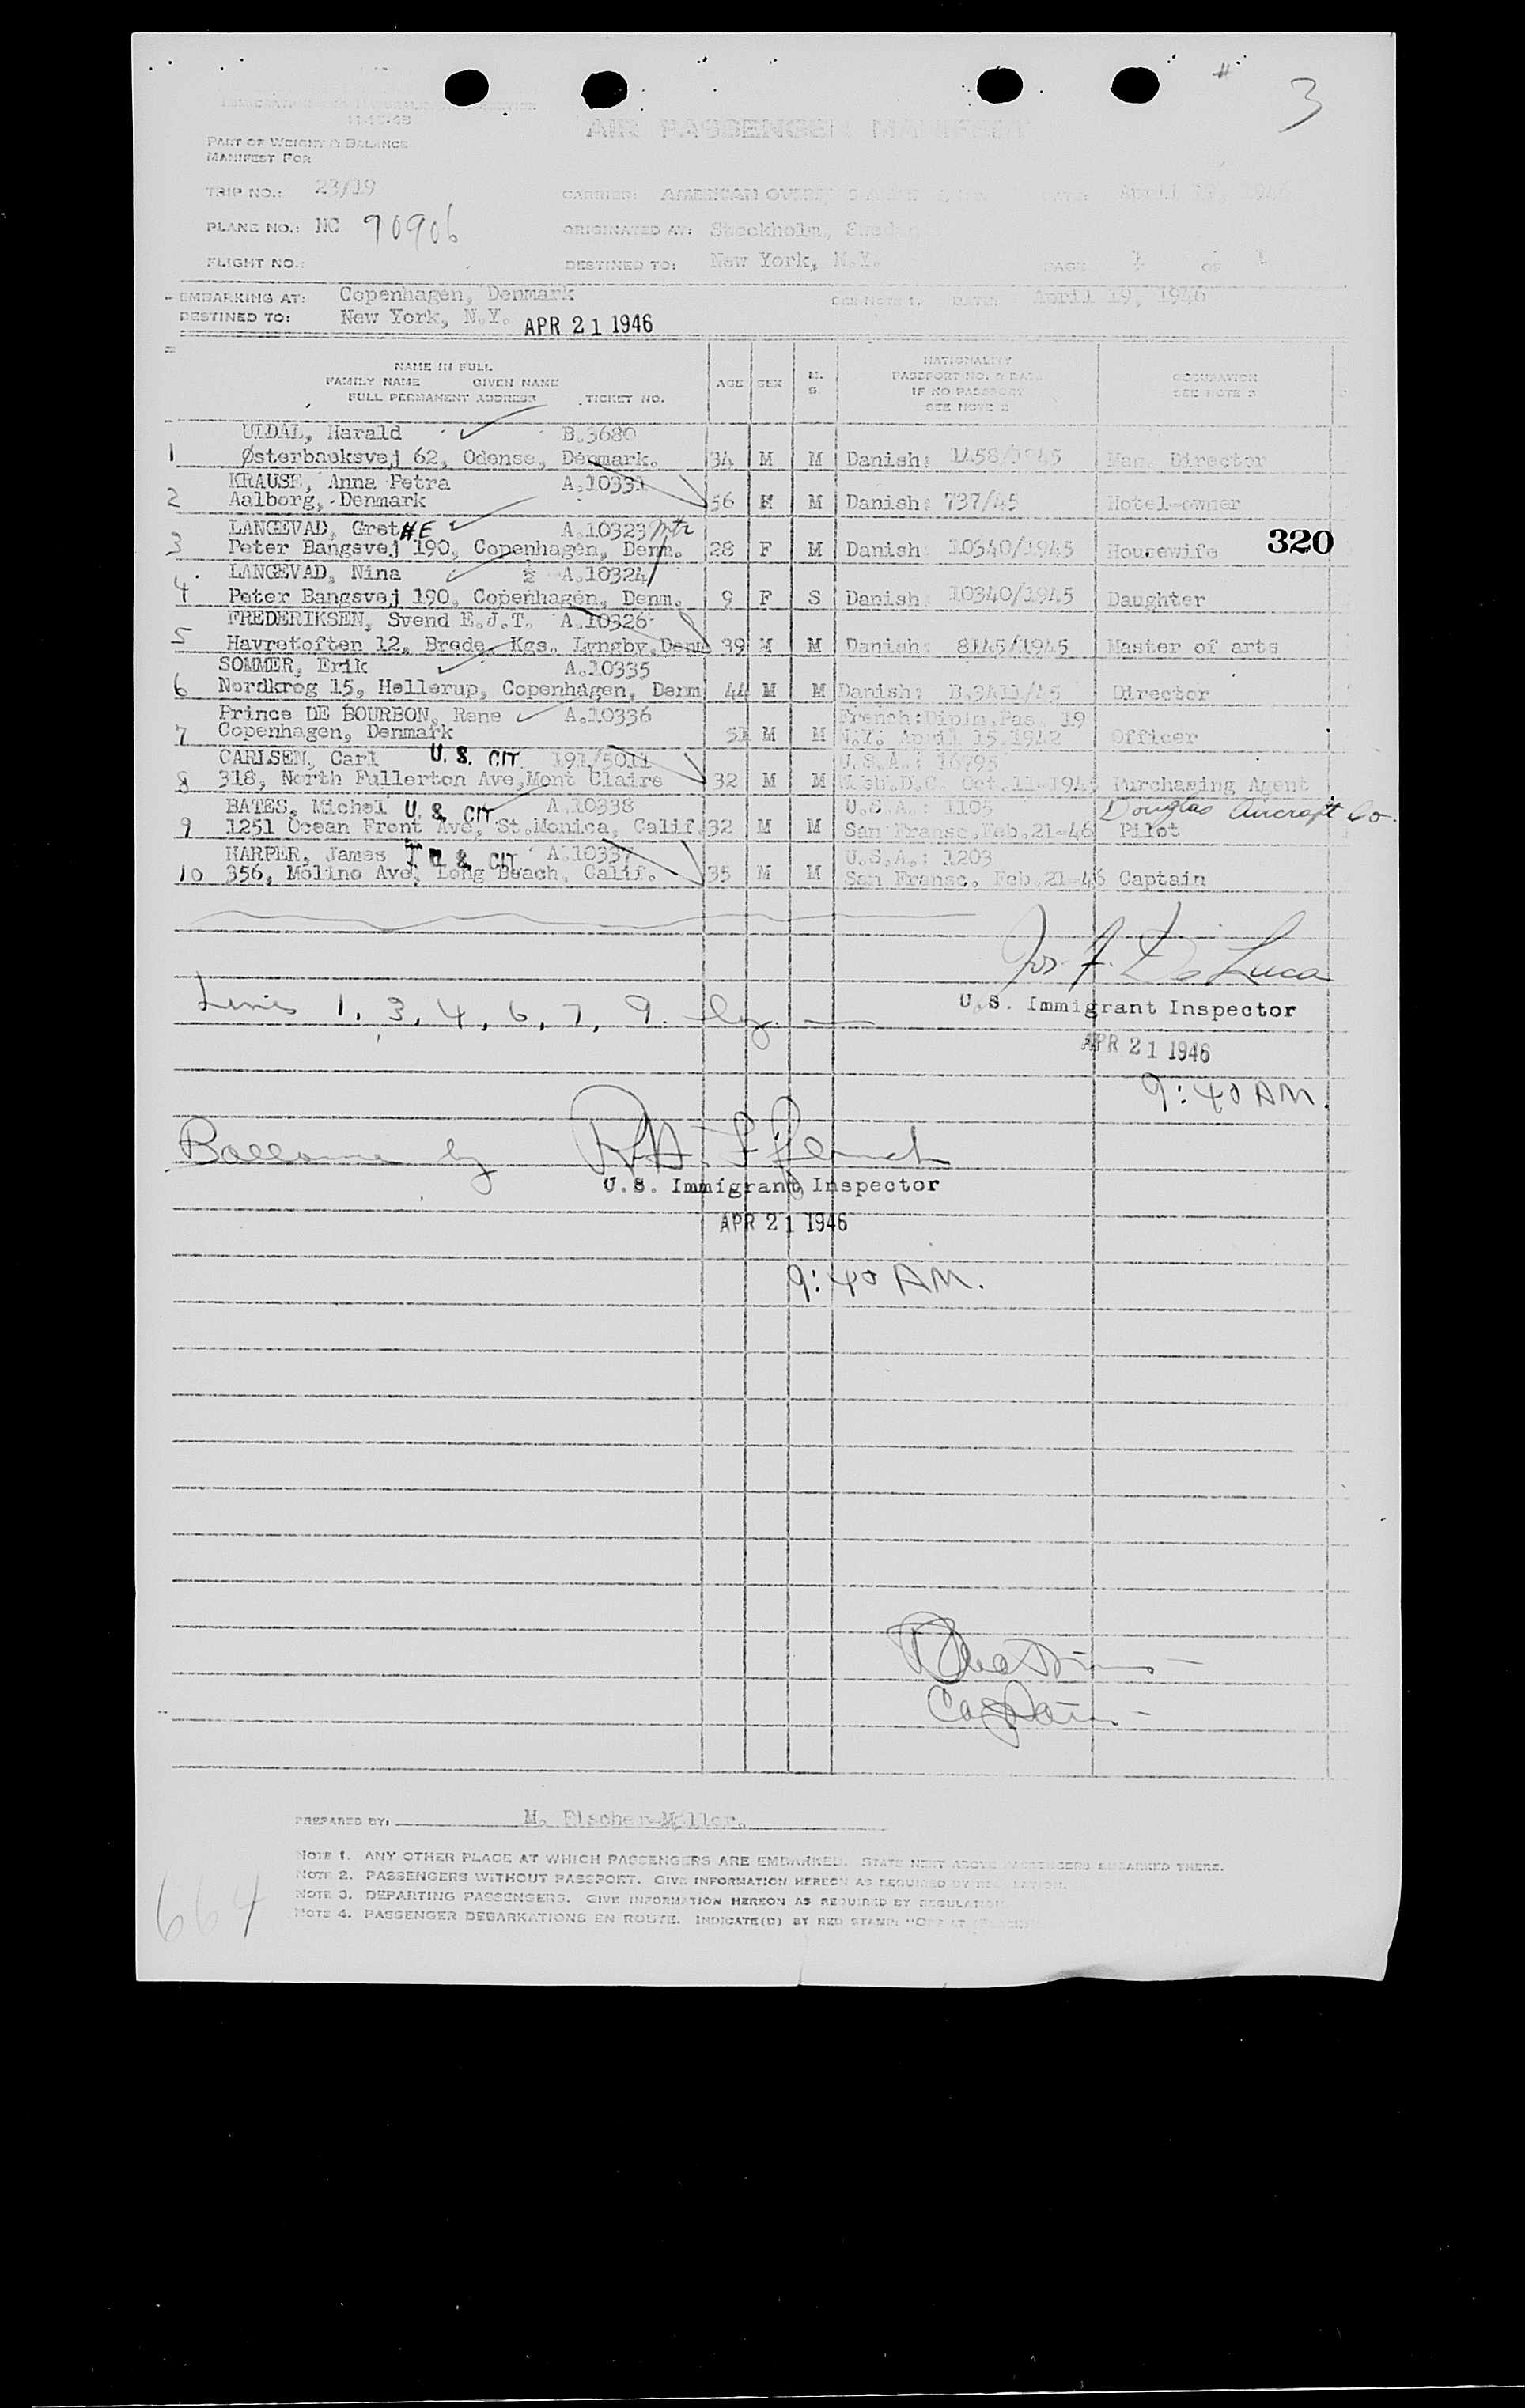 3
IMMIGRATION AND NATURALIZATION SERVICE
11-15-45
AIR PASSENGER MANIFEST
PART OF WEIGHT & BALANCE
MANIFEST FOR
TRIP NO.: 23/19 CARRIER: AMERICAN OVERSEAS DATE: April 19, 1946
PLANE NO.: NC 90906 ORIGINATED AT: Stockholm, Sweden
FLIGHT NO.: DESTINED TO: New York, N.Y. PAGE 1 OF 1
EMBARKING AT: Copenhagen, Denmark SEE NOTE 1. DATE: April 19, 1946
DESTINED TO: New York, N.Y. APR 21 1946
NAME IN FULL
FAMILY NAME GIVEN NAME
FULL PERMANENT ADDRESS TICKET NO.
AGE SEX M. S.
NATIONALITY
PASSPORT NO. & DATE
IF NO PASSPORT
SEE NOTE 2
OCCUPATION
SEE NOTE 3
ULDAL, Harald B.3680
1 Østerbauksvej 62, Odense, Denmark. 34 M M Danish: 1458/1945 Man. Director
KRAUSE, Anna Petra A.10331
2 Aalborg, Denmark 56 F M Danish: 737/45 Hotel-owner
LANGEVAD, GretHE A.10323
3 Peter Bangsvej 190, Copenhagen, Denm. 28 F M Danish: 10340/1945 Housewife 320
LANGEVAD, Nina ½ A.10324
4 Peter Bangsvej 190, Copenhagen, Denm. 9 F S Danish: 10340/1945 Daughter
FREDERIKSEN, Svend E.J.T. A.10326
5 Havretoften 12, Brede, Kgs. Lyngby, Denm 39 M M Danish: 8145/1945 Master of arts
SOMMER, Erik A.10335
6 Nordkrog 15, Hellerup, Copenhagen, Denm 44 M M Danish: B.3411/45 Director
Prince DE BOURBON, Rene A.10336 French:Diplm.Pas. 19
7 Copenhagen, Denmark 51 M M N.Y. April 15,1942 Officer
CARLSEN, Carl U. S. CIT. 191/5011 U.S.A.: 16795
8 318, North Fullerton Ave,Mont Claire 32 M M Wash.D.C. Oct.11-1945 Purchasing Agent
BATES, Michel U. S. CIT A.10338 U.S.A. 1105 Douglas Aircraft Co.
9 1251 Ocean Front Ave, St.Monica, Calif. 32 M M San Fransc.Feb.21-46 Pilot
HARPER, James T U. S. CIT A.10337 U.S.A.: 1203
10 356, Molino Ave, Long Beach, Calif. 35 M M San Fransc, Feb.21-46 Captain
Jos. F. De Luca
U.S. Immigrant Inspector
Lines 1, 3, 4, 6, 7, 9.
APR 21 1946
9:40 AM.
by
U.S. Immigrant Inspector
APR 21 1946
9:40 AM.
Captain
PREPARED BY: M. Fischer-Møller.
NOTE 1. ANY OTHER PLACE AT WHICH PASSENGERS ARE EMBARKED. STATE NEXT ABOVE PASSENGERS EMBARKED THERE.
NOTE 2. PASSENGERS WITHOUT PASSPORT. GIVE INFORMATION HEREON AS REQUIRED BY REGULATION.
NOTE 3. DEPARTING PASSENGERS. GIVE INFORMATION HEREON AS REQUIRED BY REGULATION
NOTE 4. PASSENGER DEBARKATIONS EN ROUTE. INDICATE(D) BY RED STAMP: "OFF AT (PLACE)"
664